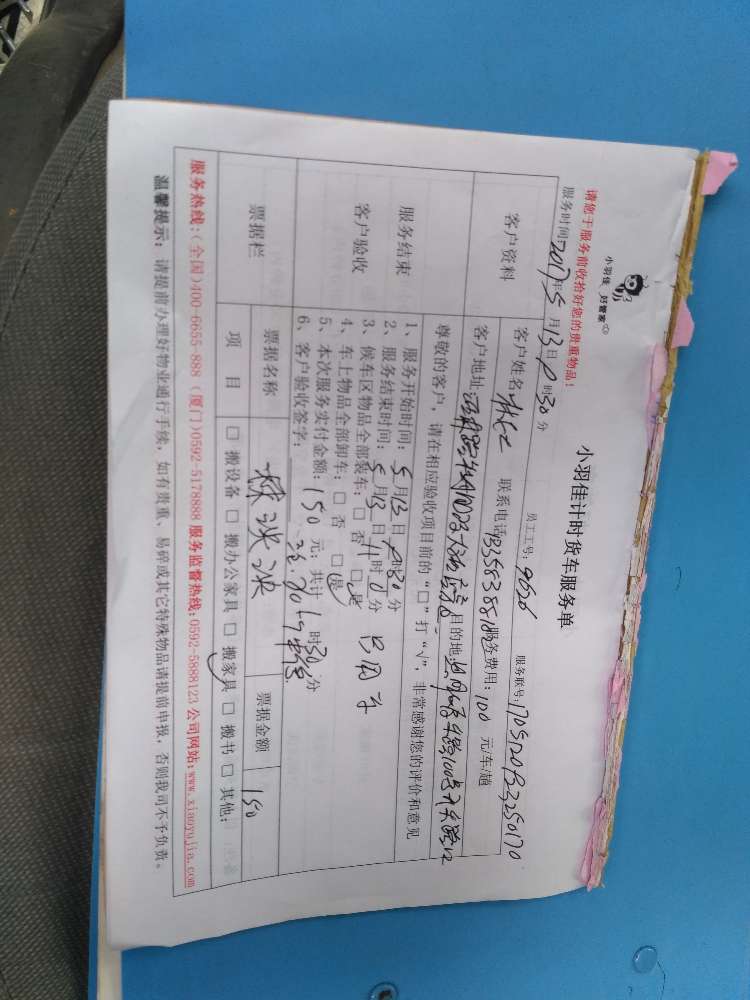 小羽佳 好管家
小羽佳计时货车服务单
请您于服务前收拾好您的贵重物品！
员工工号：9626 服务账号：
服务时间2017年5月13日 时30分
客户资料
客户姓名 联系电话 服务费用：100 元/车/趟
客户地址 目的地
尊敬的客户，请在相应验收项目前的“□”打“√”，非常感谢您的评价和意见
服务结束
客户验收
1、服务开始时间：5月13日 时30分
2、服务结束时间：5月13日11时0分
3、候车区物品全部装车：□ 否 □是
4、车上物品全部卸车：□ 否 □是
5、本次服务实付金额：150 元；共计 时30分
6、客户验收签字：
票据栏
票据名称 票据金额 150
项 目 □ 搬设备 □ 搬办公家具 □ 搬家具 □ 搬书 □ 其他：
服务热线：（全国）400-6655-888（厦门）0592-5178888 服务监督热线：0592-5888123 公司网站：www.xiaoyujia.com
温馨提示：请提前办理好物业通行手续，如有贵重、易碎或其它特殊物品请提前申报，否则我司不予负责。